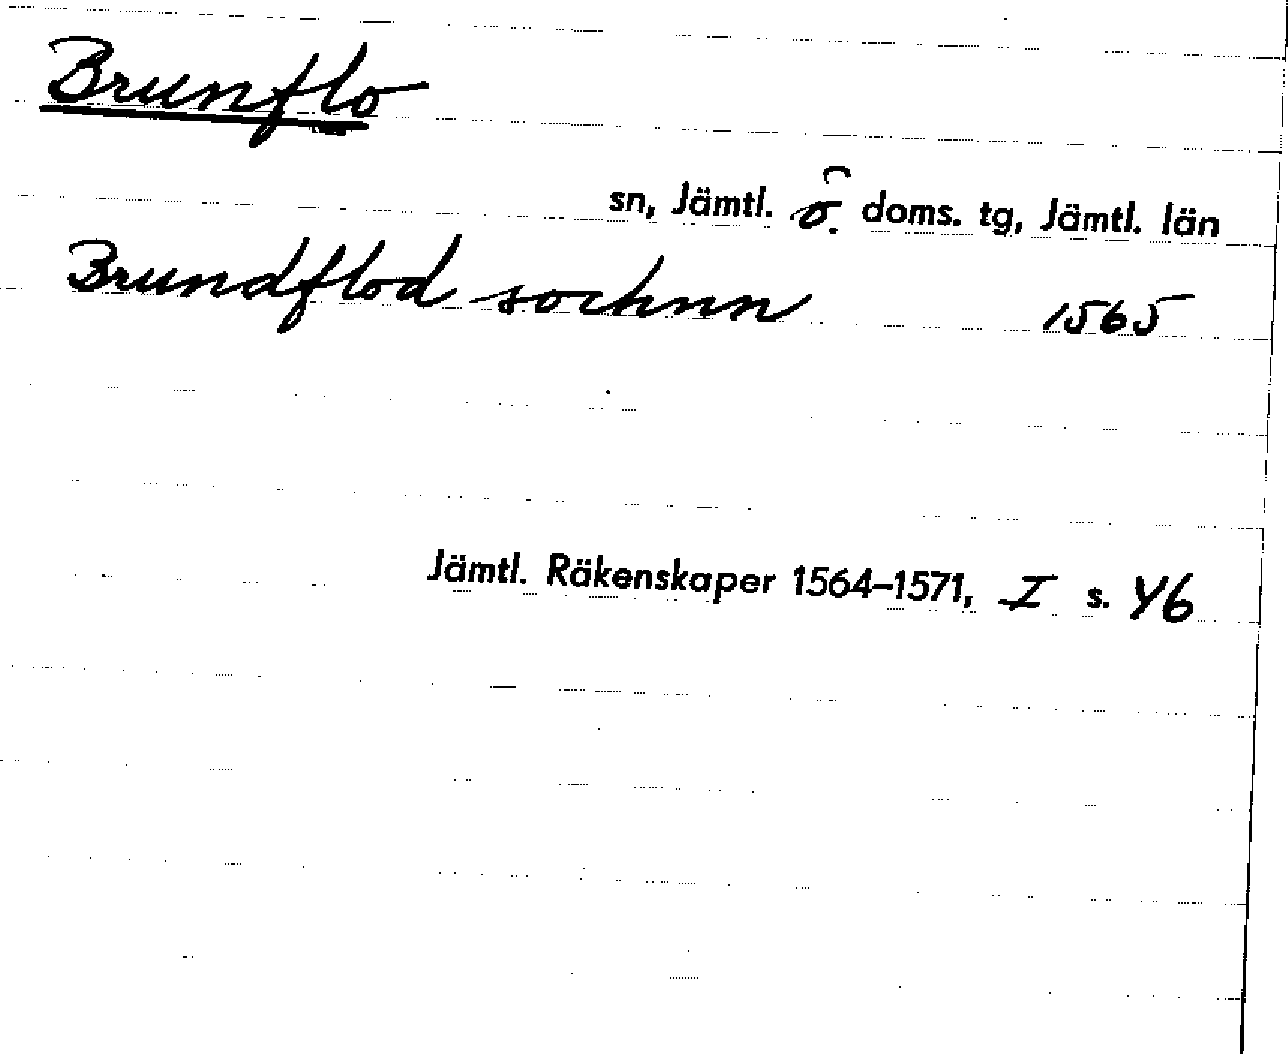 Brunflo
sn, Jämtl. ö. doms. tg, Jämtl. län
Brundflod sochnn 1565
Jämtl. Räkenskaper 1564–1571, I s. 46